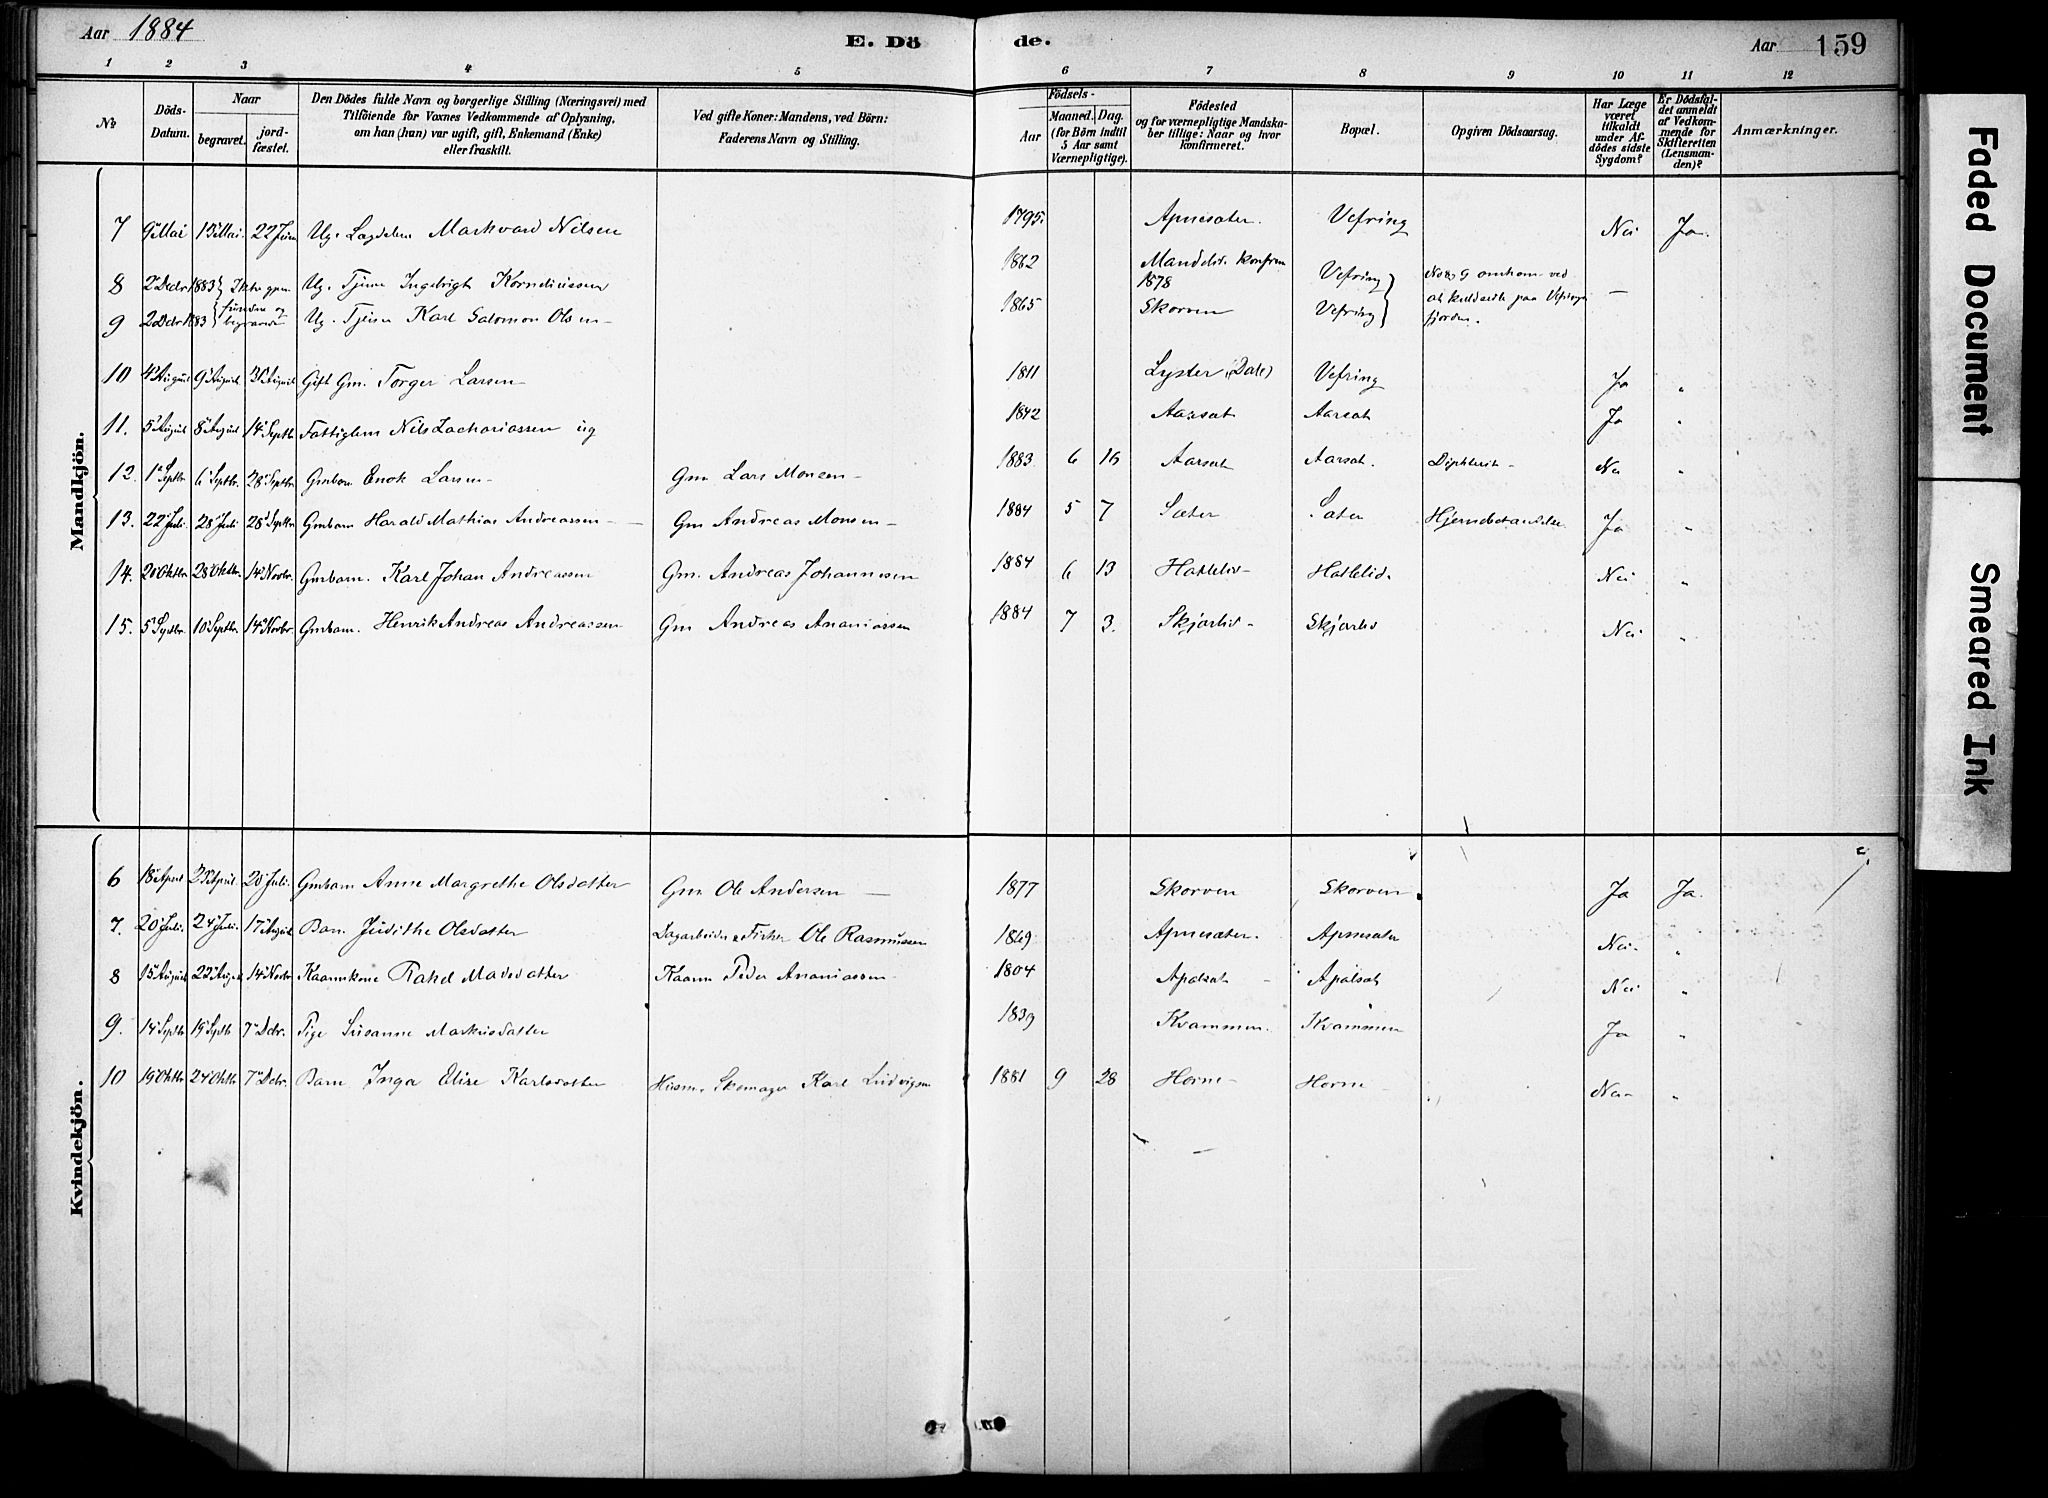 Aar 1884
E. Döde.
Aar 159
1 2 3 4 5 6 7 8 9 10 11 12
No
Döds-Datum.
Naar
begravet.
jordfæstet.
Den Dödes fulde Navn og borgerlige Stilling (Næringsvei) med
Tilföiende for Voxnes Vedkommende af Oplysning,
om han (hun) var ugift, gift, Enkemand (Enke)
eller fraskilt.
Ved gifte Koner: Mandens, ved Börn:
Faderens Navn og Stilling.
Födsels-
Aar
Maaned. Dag.
(for Börn indtil
5 Aar samt
Værnepligtige).
Födested
og for værnepligtige Mandska-
ber tillige: Naar og hvor
konfirmeret.
Bopæl.
Opgiven Dödsaarsag.
Har Læge
været
tilkaldt
under Af-
dödes sidste
Sygdom?
Er Dödsfal-
det anmeldt
af Vedkom-
mende for
Skifteretten
(Lensman-
den)?
Anmærkninger.
Mandkjön.
7 9 Mai 13 Mai 22 Juni Ug. Lægdelem Markvard Nilsen 1795. Apnesæter. Vefring Nei Ja.
8 2 Decbr 1883 Ikke gjen- Ug. Tjener Ingebrigt Korneliussen 1862 Mandelid. konfirm 1878 Vefring No 8 & 9 omkom ved
9 2 Decbr 1883 funden og begravede Ug. Tjener Karl Salomon Olsen 1865 Skorven Vefring at kuldseile paa Vefrings fjorden. —
10 4 August 9 August 31 August Gift Gm. Torger Larsen 1811 Lyster (Dale) Vefring Ja "
11. 5 August 8 August 14 Septbr Fattiglem Nils Zachariassen ug 1842 Aarsæt Aarsæt Ja "
12. 1 Septbr 6 Septbr. 28 Septbr Gmbarn Enok Larsen Gm Lars Monsen 1883 6 16 Aarsæt Aarsæt. Diphterit Nei "
13. 22 Juli 28 Juli 28 Septbr Gmbarn Harald Mathias Andreassen Gm Andreas Monsen 1884 5 7 Sæter Sæter Hjernebetændelse Ja "
14. 20 Oktbr. 28 Oktbr. 14 Novbr. Gmbarn. Karl Johan Andreassen Gm. Andreas Johannesen 1884 6 13 Hatlelid Hatlelid. Nei "
15. 5 Septbr. 10 Septbr. 14 Novbr. Gmbarn. Henrik Andreas Andreassen Gm Andreas Ananiassen 1884 7 3. Skjærlid Skjærlid Nei "
Kvindekjön.
6 18 April 25 April 20 Juli. Gmbarn Anne Margrethe Olsdatter Gm Ole Andersen 1877 Skorven Skorven Ja Ja.
7. 20 Juli. 24 Juli. 17 August Barn Judithe Olsdatter Dagarbeider & Fisker Ole Rasmussen 1869 Apnesæter. Apnesæter Nei "
8 15 August 22 August 14 Novbr Kaarmkone Rakel Madsdatter Kaarm Peder Ananiassen 1804 Apalsæt Apalsæt Nei "
9. 14 Septbr 19 Septb 7 Dcbr. Pige Susanne Markusdatter 1839 Kvammen. Kvammen Ja "
10 19 Oktbr 24 Oktbr 7 Dcbr. Barn Inga Elise Karlsdatter Husm. Skomager Karl Ludvigsen 1881 9 28 Horne Horne Nei "
Faded Document
Smeared Ink